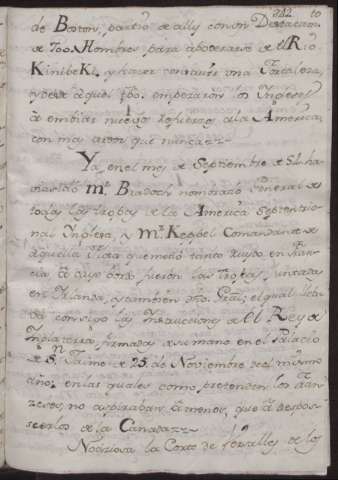 de Boston, partió de ally con un Destacam.
de 700 Hombres para apoderarse de el Rio
KiniBeKi, y hacer construir una Fortaleza,
y desde aquel tpo. empezaron los Ingleses
a embiar nuevos refuerzos a la América
con mas ardor que nunca
Ya, en el mes de Septiembre de 54 ha
sido Mr. Bradock nombrado General de
todas las tropas de la America Septentrio
nal Inglesa, y Mr. Keppel Comandante de
aquella que metió tanto ruydo en Fran
cia a cuyo bordo fueron las tropas juntadas
en Irlanda, y tambien dho. Gral; el qual lleba
ba consigo las Instrucciones de el Rey de
Inglaterra firmadas de su mano en el Palacio
de Sn. Jaime de 25 de Noviembre del mismo
año; en las quales como pretenden los Fran
zeses, no aspiraban a menos, que a despos
seerlos de la Canada
Noticiosa la Corte de Versalles de los